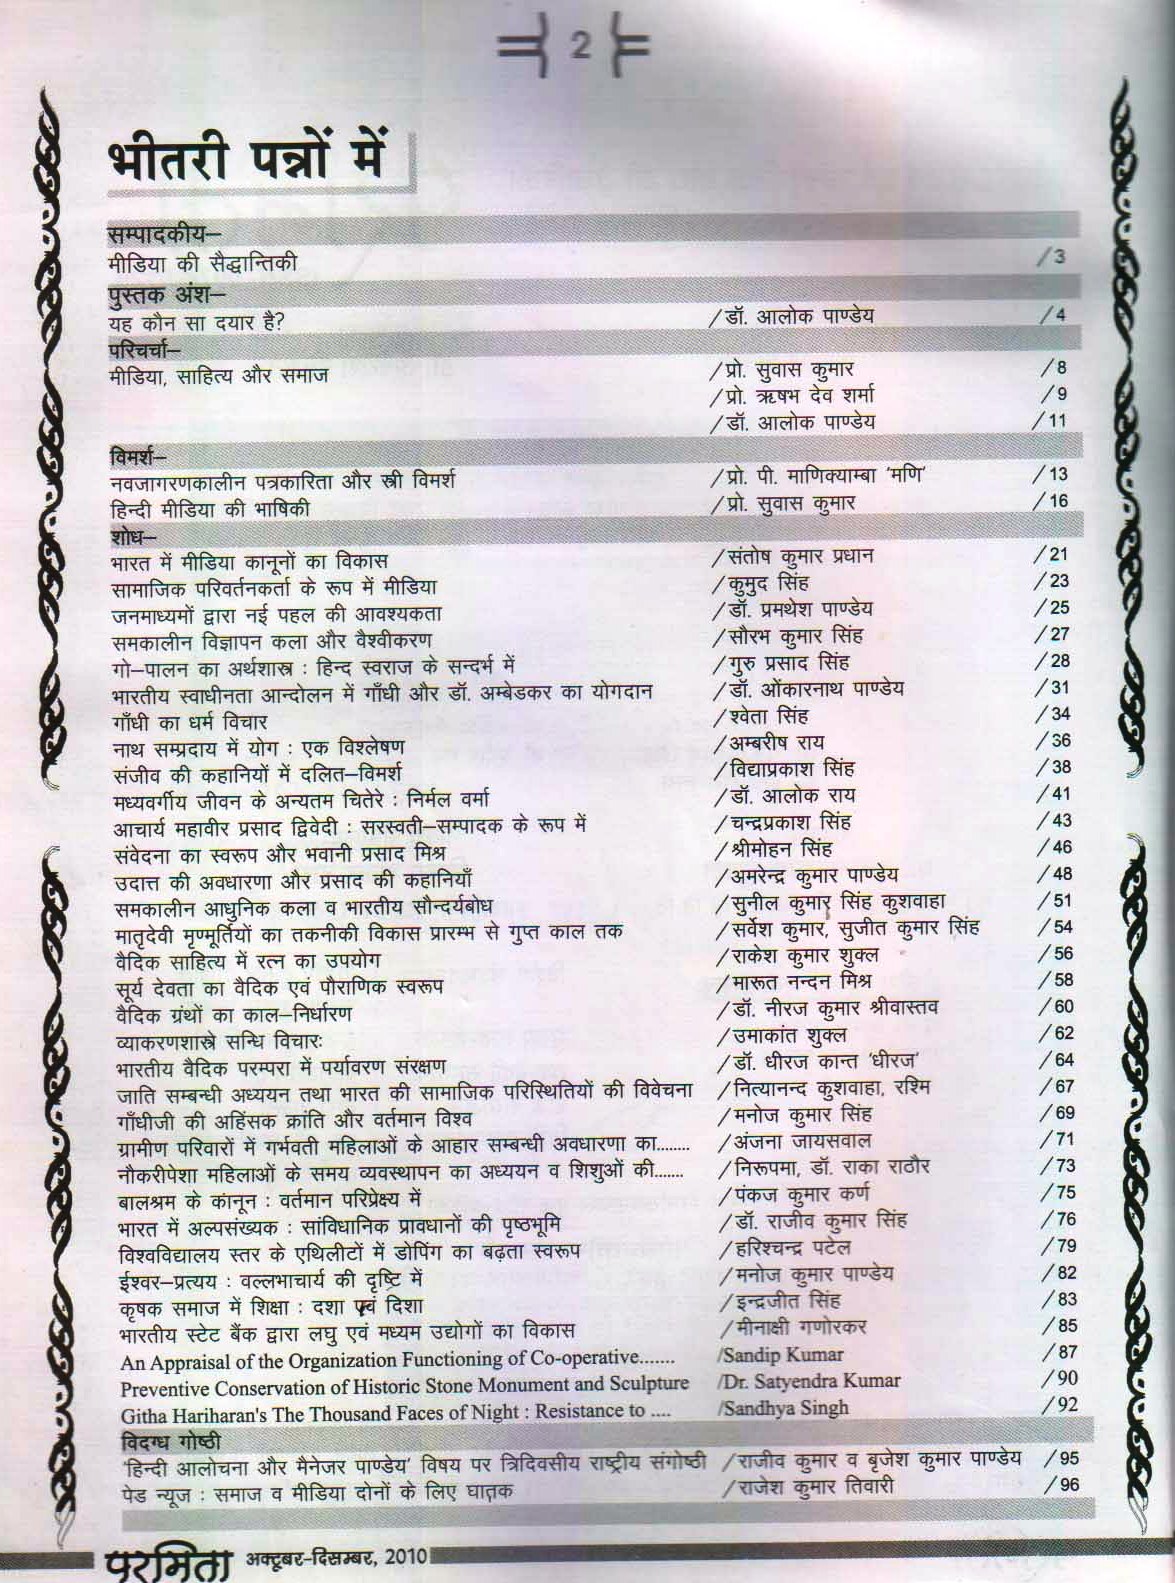 2
भीतरी पन्नों में
सम्पादकीय–
मीडिया की सैद्धान्तिकी /3
पुस्तक अंश–
यह कौन सा दयार है? /डॉ. आलोक पाण्डेय /4
परिचर्चा–
मीडिया, साहित्य और समाज /प्रो. सुवास कुमार /8
/प्रो. ऋषभ देव शर्मा /9
/डॉ. आलोक पाण्डेय /11
विमर्श–
नवजागरणकालीन पत्रकारिता और स्त्री विमर्श /प्रो. पी. माणिक्याम्बा 'मणि' /13
हिन्दी मीडिया की भाषिकी /प्रो. सुवास कुमार /16
शोध–
भारत में मीडिया कानूनों का विकास /संतोष कुमार प्रधान /21
सामाजिक परिवर्तनकर्ता के रूप में मीडिया /कुमुद सिंह /23
जनमाध्यमों द्वारा नई पहल की आवश्यकता /डॉ. प्रमथेश पाण्डेय /25
समकालीन विज्ञापन कला और वैश्वीकरण /सौरभ कुमार सिंह /27
गो–पालन का अर्थशास्त्र : हिन्द स्वराज के सन्दर्भ में /गुरु प्रसाद सिंह /28
भारतीय स्वाधीनता आन्दोलन में गाँधी और डॉ. अम्बेडकर का योगदान /डॉ. ओंकारनाथ पाण्डेय /31
गाँधी का धर्म विचार /श्वेता सिंह /34
नाथ सम्प्रदाय में योग : एक विश्लेषण /अम्बरीष राय /36
संजीव की कहानियों में दलित–विमर्श /विद्याप्रकाश सिंह /38
मध्यवर्गीय जीवन के अन्यतम चितेरे : निर्मल वर्मा /डॉ. आलोक राय /41
आचार्य महावीर प्रसाद द्विवेदी : सरस्वती–सम्पादक के रूप में /चन्द्रप्रकाश सिंह /43
संवेदना का स्वरूप और भवानी प्रसाद मिश्र /श्रीमोहन सिंह /46
उदात्त की अवधारणा और प्रसाद की कहानियाँ /अमरेन्द्र कुमार पाण्डेय /48
समकालीन आधुनिक कला व भारतीय सौन्दर्यबोध /सुनील कुमार सिंह कुशवाहा /51
मातृदेवी मृण्मूर्तियों का तकनीकी विकास प्रारम्भ से गुप्त काल तक /सर्वेश कुमार, सुजीत कुमार सिंह /54
वैदिक साहित्य में रत्न का उपयोग /राकेश कुमार शुक्ल /56
सूर्य देवता का वैदिक एवं पौराणिक स्वरूप /मारूत नन्दन मिश्र /58
वैदिक ग्रंथों का काल–निर्धारण /डॉ. नीरज कुमार श्रीवास्तव /60
व्याकरणशास्त्रे सन्धि विचारः /उमाकांत शुक्ल /62
भारतीय वैदिक परम्परा में पर्यावरण संरक्षण /डॉ. धीरज कान्त 'धीरज' /64
जाति सम्बन्धी अध्ययन तथा भारत की सामाजिक परिस्थितियों की विवेचना /नित्यानन्द कुशवाहा, रश्मि /67
गाँधीजी की अहिंसक क्रांति और वर्तमान विश्व /मनोज कुमार सिंह /69
ग्रामीण परिवारों में गर्भवती महिलाओं के आहार सम्बन्धी अवधारणा का........ /अंजना जायसवाल /71
नौकरीपेशा महिलाओं के समय व्यवस्थापन का अध्ययन व शिशुओं की....... /निरूपमा, डॉ. राका राठौर /73
बालश्रम के कानून : वर्तमान परिप्रेक्ष्य में /पंकज कुमार कर्ण /75
भारत में अल्पसंख्यक : सांविधानिक प्रावधानों की पृष्ठभूमि /डॉ. राजीव कुमार सिंह /76
विश्वविद्यालय स्तर के एथिलीटों में डोपिंग का बढ़ता स्वरूप /हरिश्चन्द्र पटेल /79
ईश्वर–प्रत्यय : वल्लभाचार्य की दृष्टि में /मनोज कुमार पाण्डेय /82
कृषक समाज में शिक्षा : दशा एवं दिशा /इन्द्रजीत सिंह /83
भारतीय स्टेट बैंक द्वारा लघु एवं मध्यम उद्योगों का विकास /मीनाक्षी गणोरकर /85
An Appraisal of the Organization Functioning of Co-operative....... /Sandip Kumar /87
Preventive Conservation of Historic Stone Monument and Sculpture /Dr. Satyendra Kumar /90
Githa Hariharan's The Thousand Faces of Night : Resistance to .... /Sandhya Singh /92
विदग्ध गोष्ठी
'हिन्दी आलोचना और मैनेजर पाण्डेय' विषय पर त्रिदिवसीय राष्ट्रीय संगोष्ठी /राजीव कुमार व बृजेश कुमार पाण्डेय /95
पेड न्यूज : समाज व मीडिया दोनों के लिए घातक /राजेश कुमार तिवारी /96
परमिता अक्टूबर–दिसम्बर, 2010